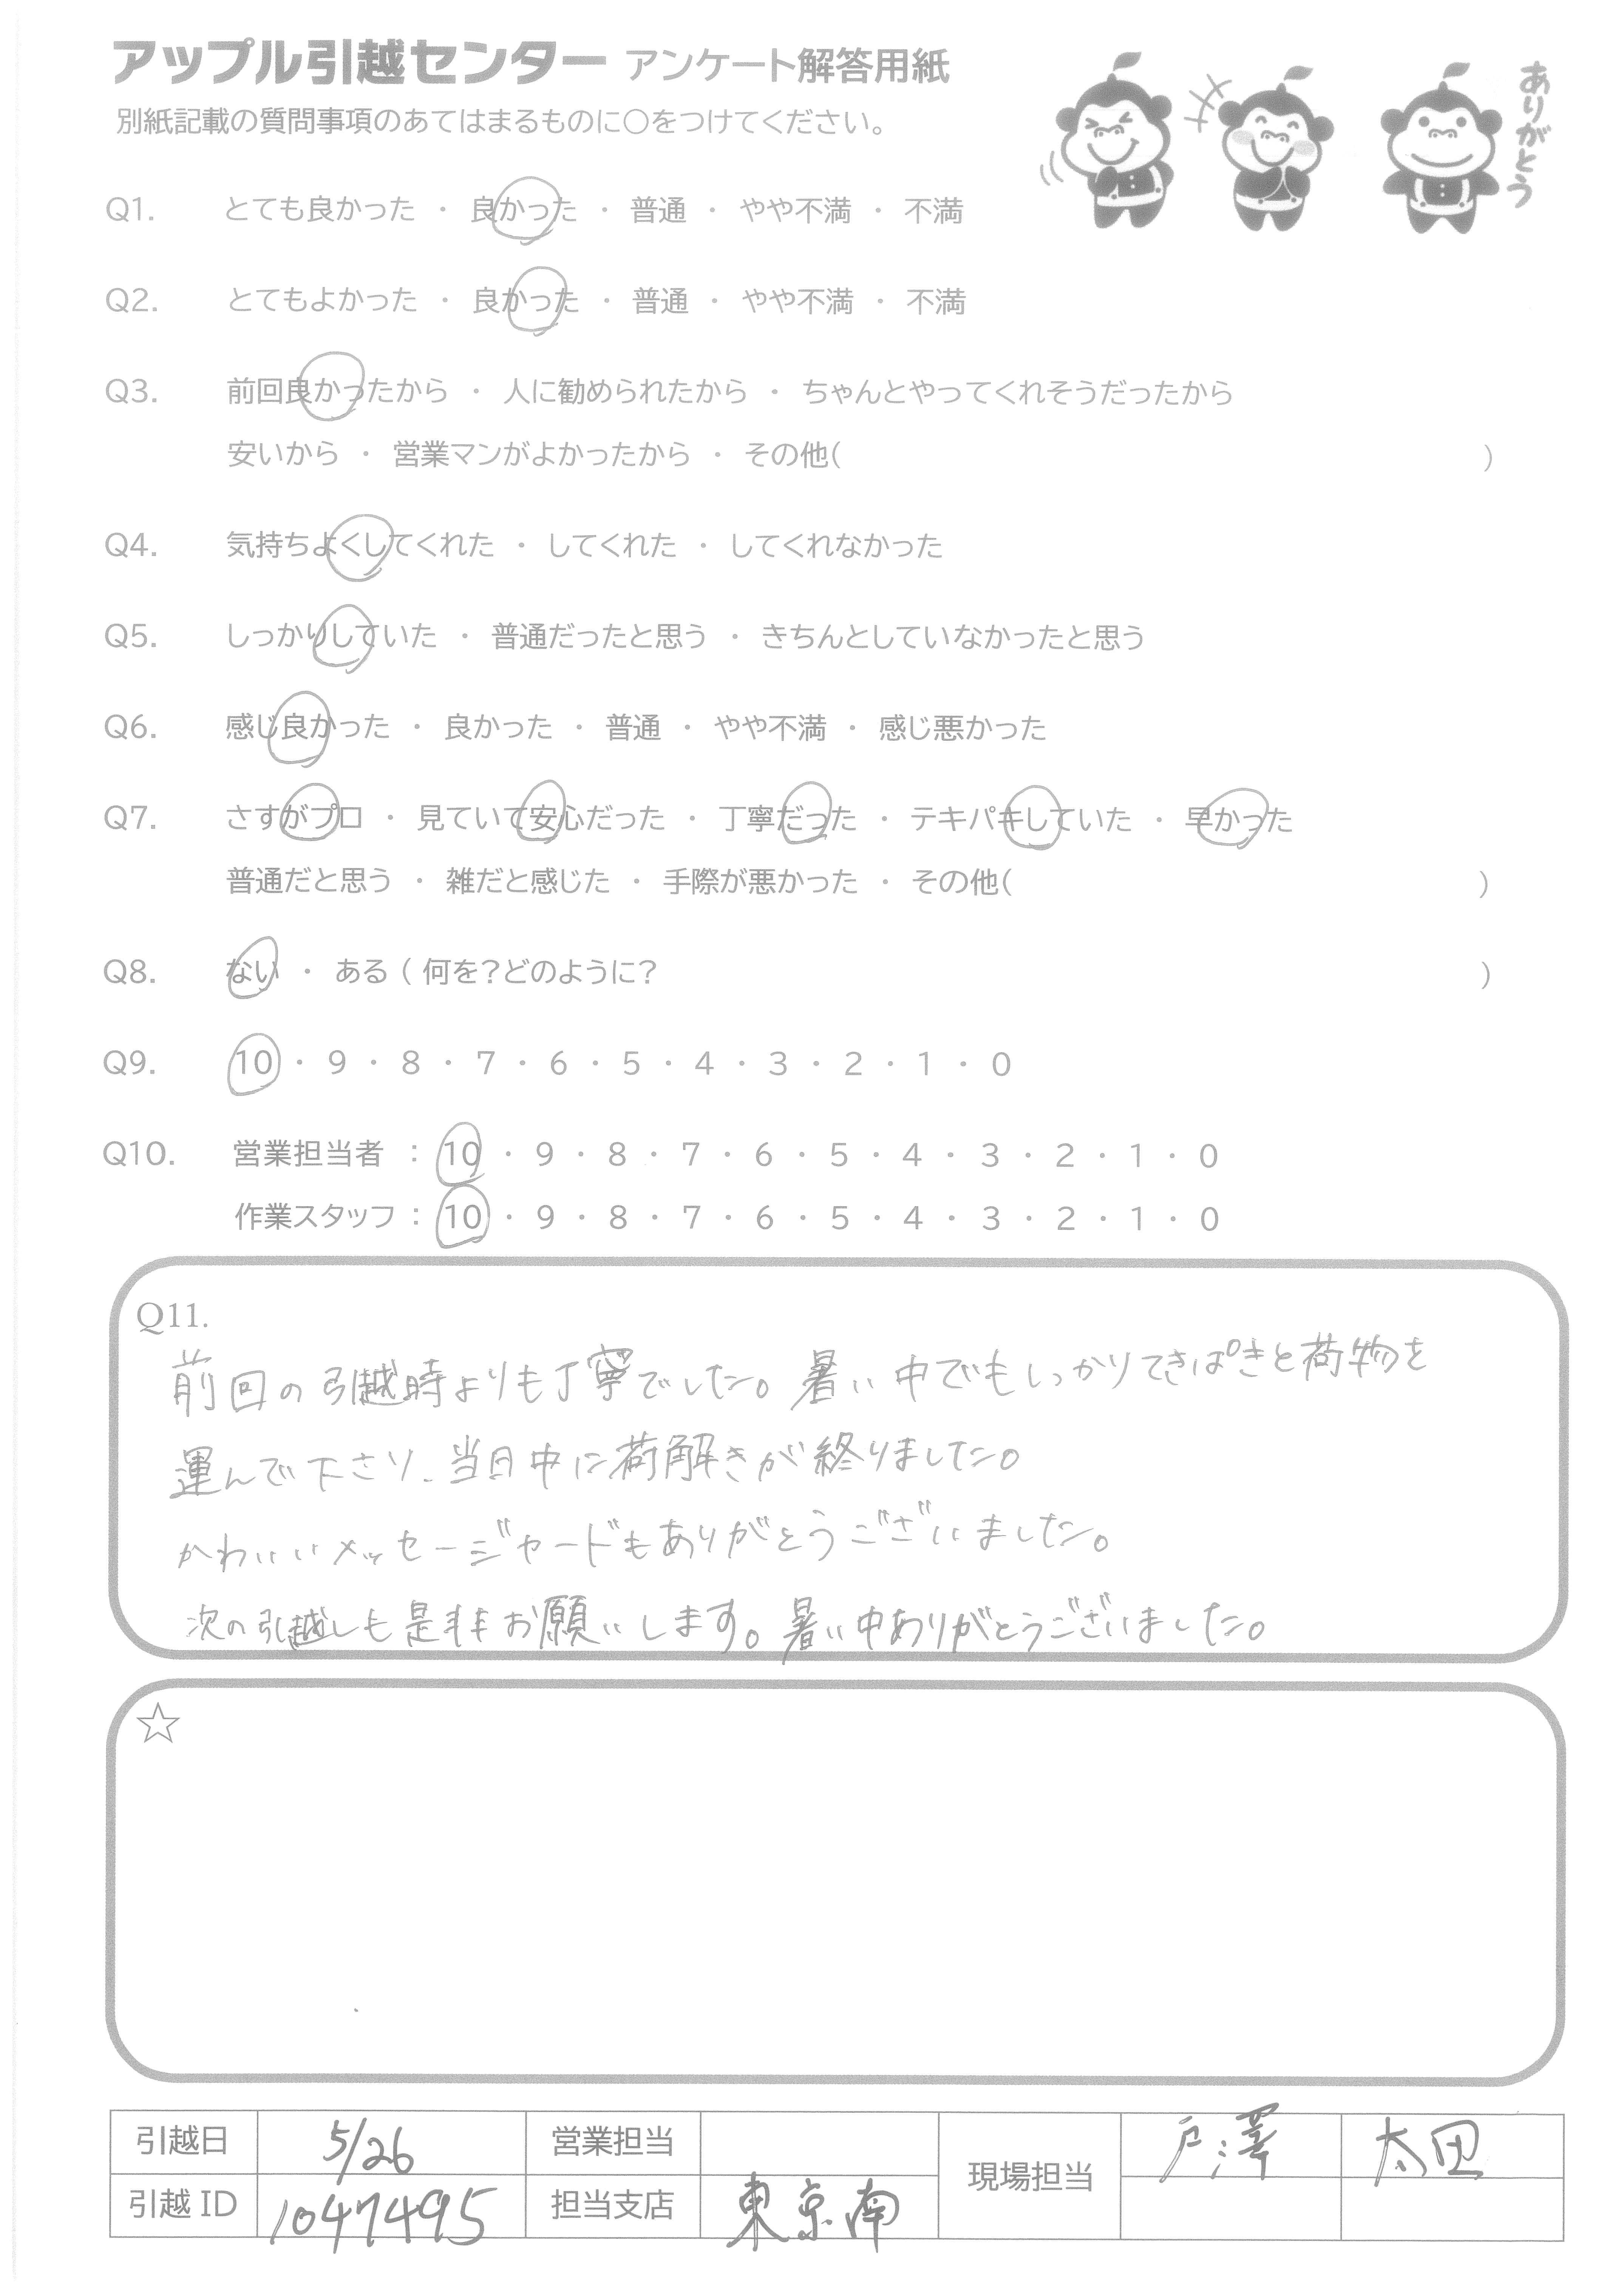 アップル引越センター アンケート解答用紙
別紙記載の質問事項のあてはまるものに○をつけてください。
ありがとう
Q1. とても良かった ・ 良かった ・ 普通 ・ やや不満 ・ 不満
Q2. とてもよかった ・ 良かった ・ 普通 ・ やや不満 ・ 不満
Q3. 前回良かったから ・ 人に勧められたから ・ ちゃんとやってくれそうだったから
安いから ・ 営業マンがよかったから ・ その他( )
Q4. 気持ちよくしてくれた ・ してくれた ・ してくれなかった
Q5. しっかりしていた ・ 普通だったと思う ・ きちんとしていなかったと思う
Q6. 感じ良かった ・ 良かった ・ 普通 ・ やや不満 ・ 感じ悪かった
Q7. さすがプロ ・ 見ていて安心だった ・ 丁寧だった ・ テキパキしていた ・ 早かった
普通だと思う ・ 雑だと感じた ・ 手際が悪かった ・ その他( )
Q8. ない ・ ある ( 何を？どのように？ )
Q9. 10 ・ 9 ・ 8 ・ 7 ・ 6 ・ 5 ・ 4 ・ 3 ・ 2 ・ 1 ・ 0
Q10. 営業担当者 : 10 ・ 9 ・ 8 ・ 7 ・ 6 ・ 5 ・ 4 ・ 3 ・ 2 ・ 1 ・ 0
作業スタッフ : 10 ・ 9 ・ 8 ・ 7 ・ 6 ・ 5 ・ 4 ・ 3 ・ 2 ・ 1 ・ 0
Q11.
前回の引越時よりも丁寧でした。暑い中でもしっかりてきぱきと荷物を
運んで下さり、当日中に荷解きが終りました。
かわいいメッセージカードもありがとうございました。
次の引越しも是非お願いします。暑い中ありがとうございました。
☆
引越日 5/26 営業担当 現場担当 戸澤 太田
引越 ID 10474495 担当支店 東京南